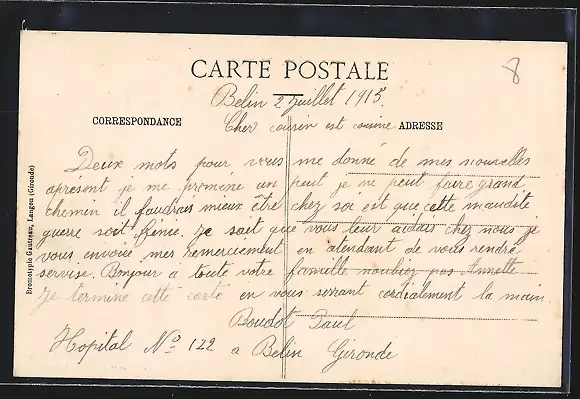 8
CARTE POSTALE
Belin 2 Juillet 1915.
CORRESPONDANCE
Cher cousin est cousine
ADRESSE
Deux mots pour vous me donné de mes nouvelles
apresent je me promène un peut je ne peut faire grand
chemin il faudrais mieux être chez soi est que cette maudite
guerre soit finie. Je sait que vous leur aidais chez nous je
vous envoiée mes remerciement en atendant de vous rendre
servise. Bonjour a toute votre famille noubiez pas Annette
Je termine cette carte en vous serrant cordialement la main.
Boudot Paul
Hopital No 122 a Belin Gironde
Bromotypie Gautreau, Langon (Gironde)